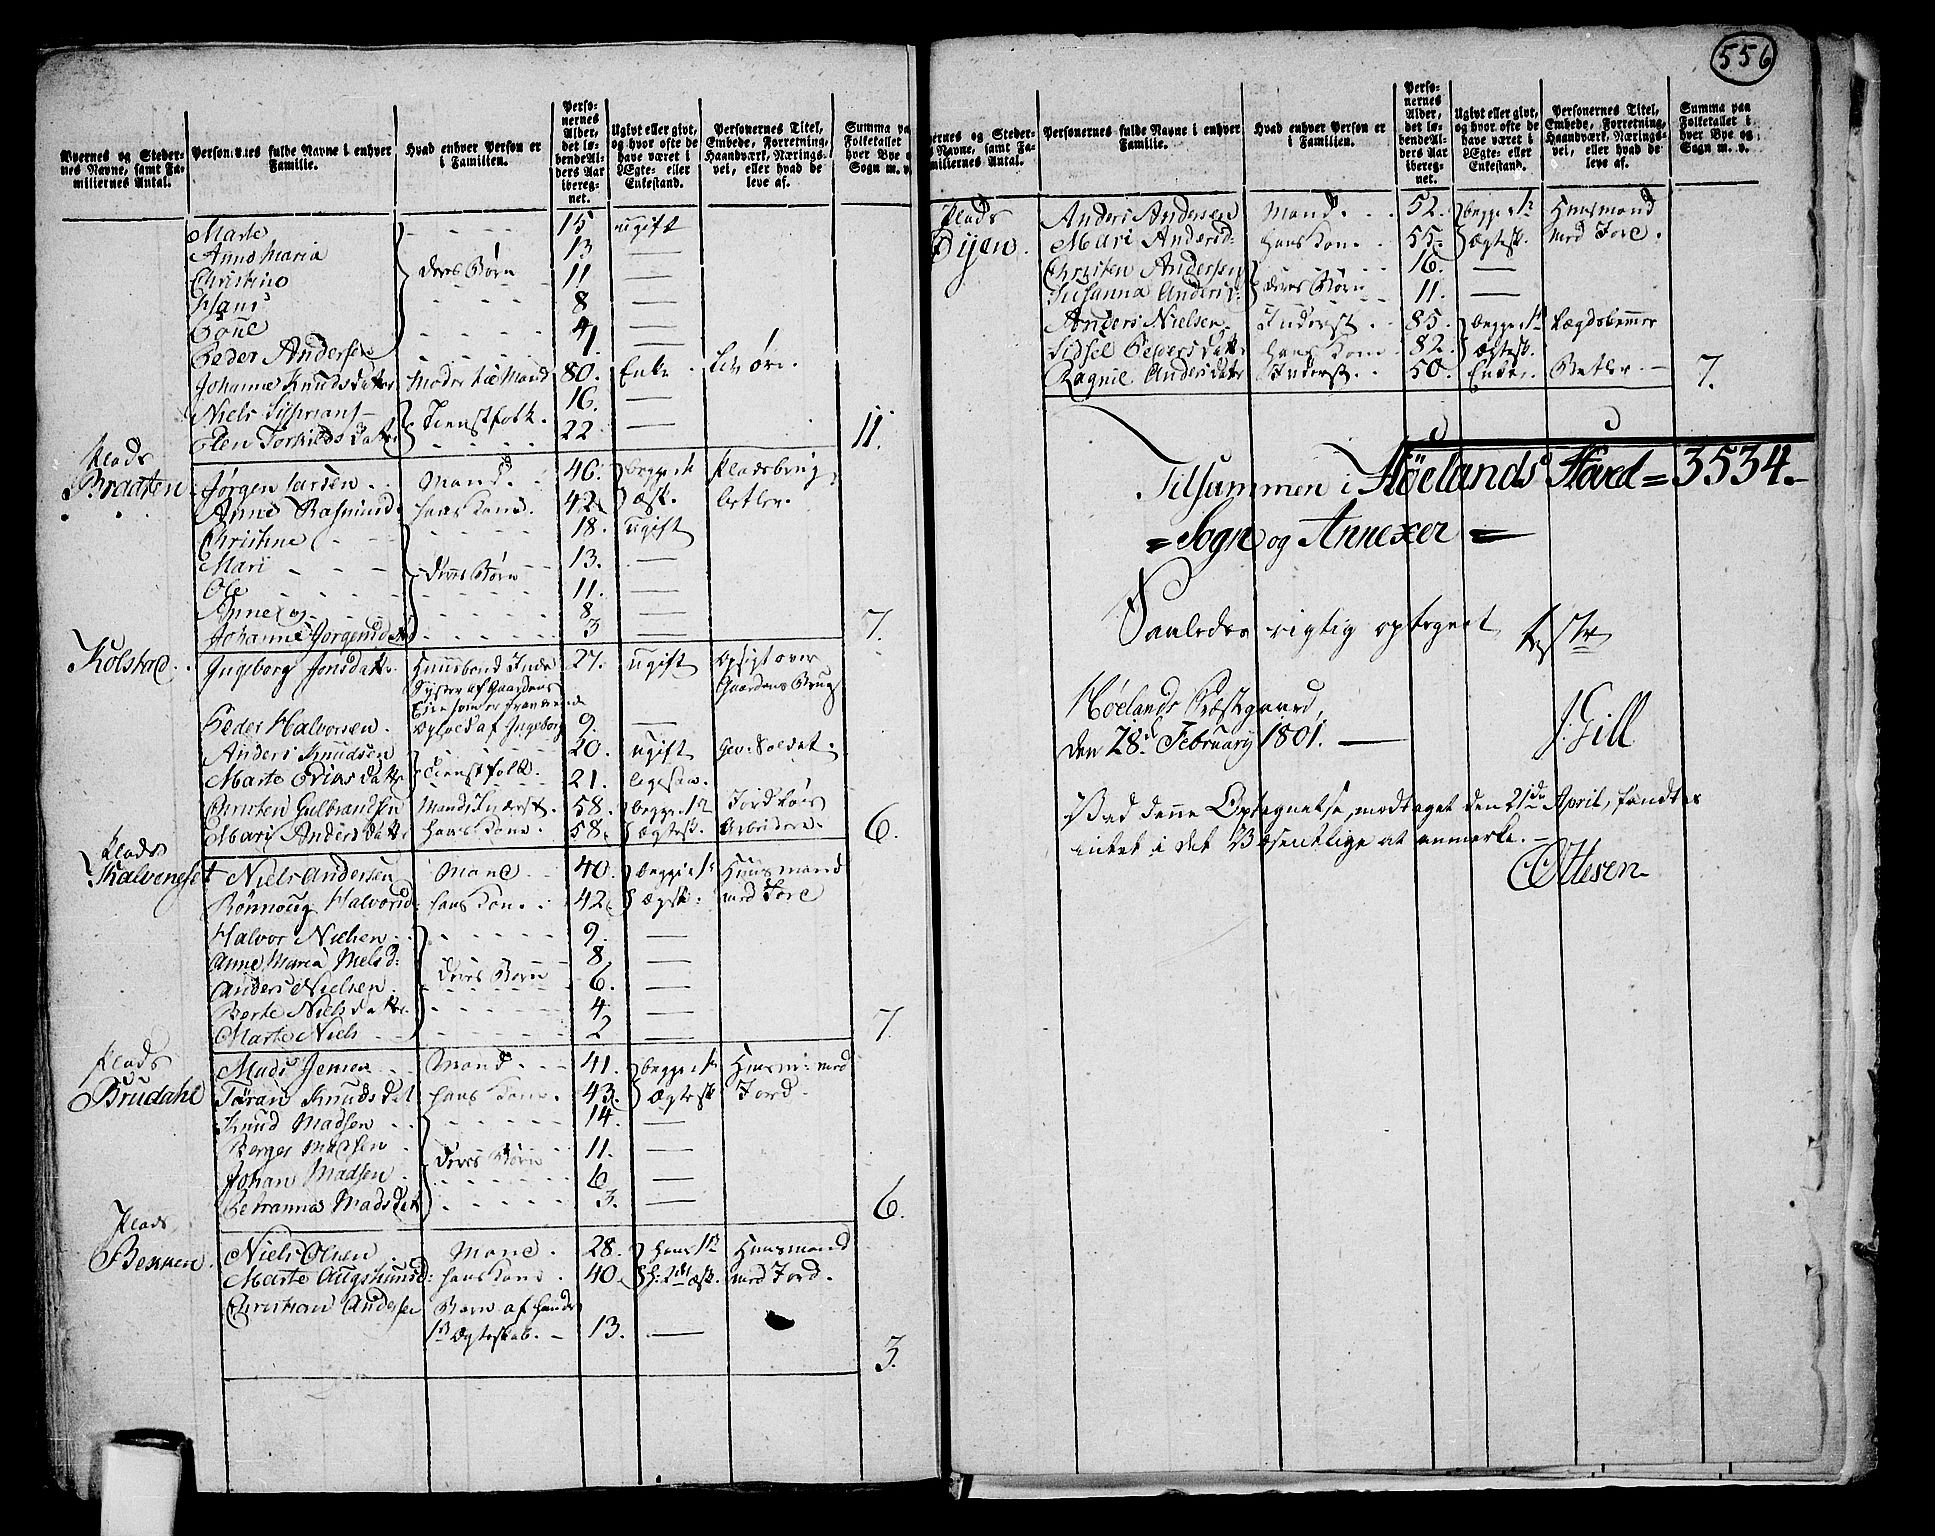 Byernes og Steder-
nes Navne, samt Fa-
miliernes Antal.
Personernes fulde Navne i enhver
Familie.
Hvad enhver Person er
i Familien.
Perso-
nernes
Alder,
det lø-
bende Al-
ders Aar
ibereg-
net.
Ugivt eller givt,
og hvor ofte de
have været i
Ægte- eller
Enkestand.
Personernes Titel,
Embede, Forretning,
Haandværk, Nærings-
vei, eller hvad de
leve af.
Summa pa
Folketallet
hver Bye o
Sogn m. v.
Marte 15 ugift
Anne Maria 13 —
Christine deres Børn 11 —
Hans 8 —
Peder Andersen 4 —
Johanne Knudsdatter Moder til Mand 80. Enke
Niels 16. —
Tienstfolk. 22 — 11.
Plads
Braaten Jørgen Larsen Mand. 46. begge 1te Pladsbrug,
Anne Rasmusd hans Kone. 42 Betler.
Christine 18. ugift
Mari 13. —
Ole deres Børn 11. —
Anne og 8 —
Johanne Jørgensdatt 3 — 7.
Kolstad. Ingeborg Jonsdatter 27. ugift Opsigt over
Syster af Gaardens Gaardens Brug
Peder Halvorsen. 9. —
Anders Knudsen 20. ugift Gev: Soldat.
Marte Tienstfolk. 21.
Christen Gulbrandsen 58. begge 1te Jordløs
Mari Andersdatter hans Kone. 58. Ægtesk. Arbeider. 6.
Plads
Kalveneset Niels Andersen Mand 40. begge 1te Huusmand
Rønnoug Halvorsd hans Kone. 42. Ægtsk. med Jord
Halvor Nielsen 9. —
Anne Maria Nielsd: 8 —
Anders Nielsen deres Børn 6. —
Berte Nielsdatter 4. —
Marte Niels 2 — 7.
Plads
Brudahl Mads Jensen Mand. 41. begge 1te Huusm: med
Knudsdat hans Kone. 43. Ægtesk Jord.
Knud Madsen 14. —
Madsen 11. —
Johan Madsen deres Børn 6 —
Madsdat 3. — 6.
Plads
Niels Olsen Mand. 28. hans 1te Huusmand
Marte hans Kone. 40. med Jord.
Christian Andersen Barn af hendes
1te Ægteskab. 13. — 3.
556
yernes og Steder-
s Navne, samt Fa-
miliernes Antal.
Personernes fulde Navne i enhver
Familie.
Hvad enhver Person er
i Familien.
Perso-
nernes
Alder,
det lø-
bende Al-
ders Aar
ibereg-
net.
Ugivt eller givt,
og hvor ofte de
have været i
Ægte- eller
Enkestand.
Personernes Titel,
Embede, Forretning,
Haandværk, Nærings-
vei, eller hvad de
leve af.
Summa paa
Folketallet i
hver Bye og
Sogn m. v.
Plads Anders Andersen Mand. 52. begge 1te Huusmand
Mari Andersd: hans Kone. 55. Ægtesk. med Jord.
Christen Andersen 16. —
Susanna Andersd: deres Børn 11. —
Anders Nielsen Inderst. 85. begge 1te Lægdslemmer
Sidsel Pedersdatter hans Kone 82. Ægtesk.
Ragnil Andersdatter Inderst. 50. Enke. Betler. 7.
Tilsammen i Høelands Hoved = 3534.
= Sogn og Annexer =
Saaledes rigtig optegnet teste
Høelands Præstgaard,
den 28de February 1801. — J. Gill
Ved denne Optegnelse, modtaget den 21de April, fandtes
intet i det Væsentlige at anmerke. —
Ottesen